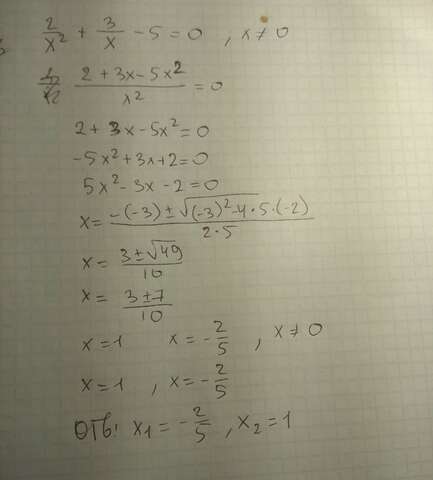 2/x² + 3/x - 5 = 0 , x ≠ 0
(2 + 3x - 5x²)/x² = 0
2 + 3x - 5x² = 0
-5x² + 3x + 2 = 0
5x² - 3x - 2 = 0
x = (-(-3) ± √((-3)² - 4 · 5 · (-2)))/(2 · 5)
x = (3 ± √49)/10
x = (3 ± 7)/10
x = 1 x = -2/5 , x ≠ 0
x = 1 , x = -2/5
Отв: x₁ = -2/5 , x₂ = 1